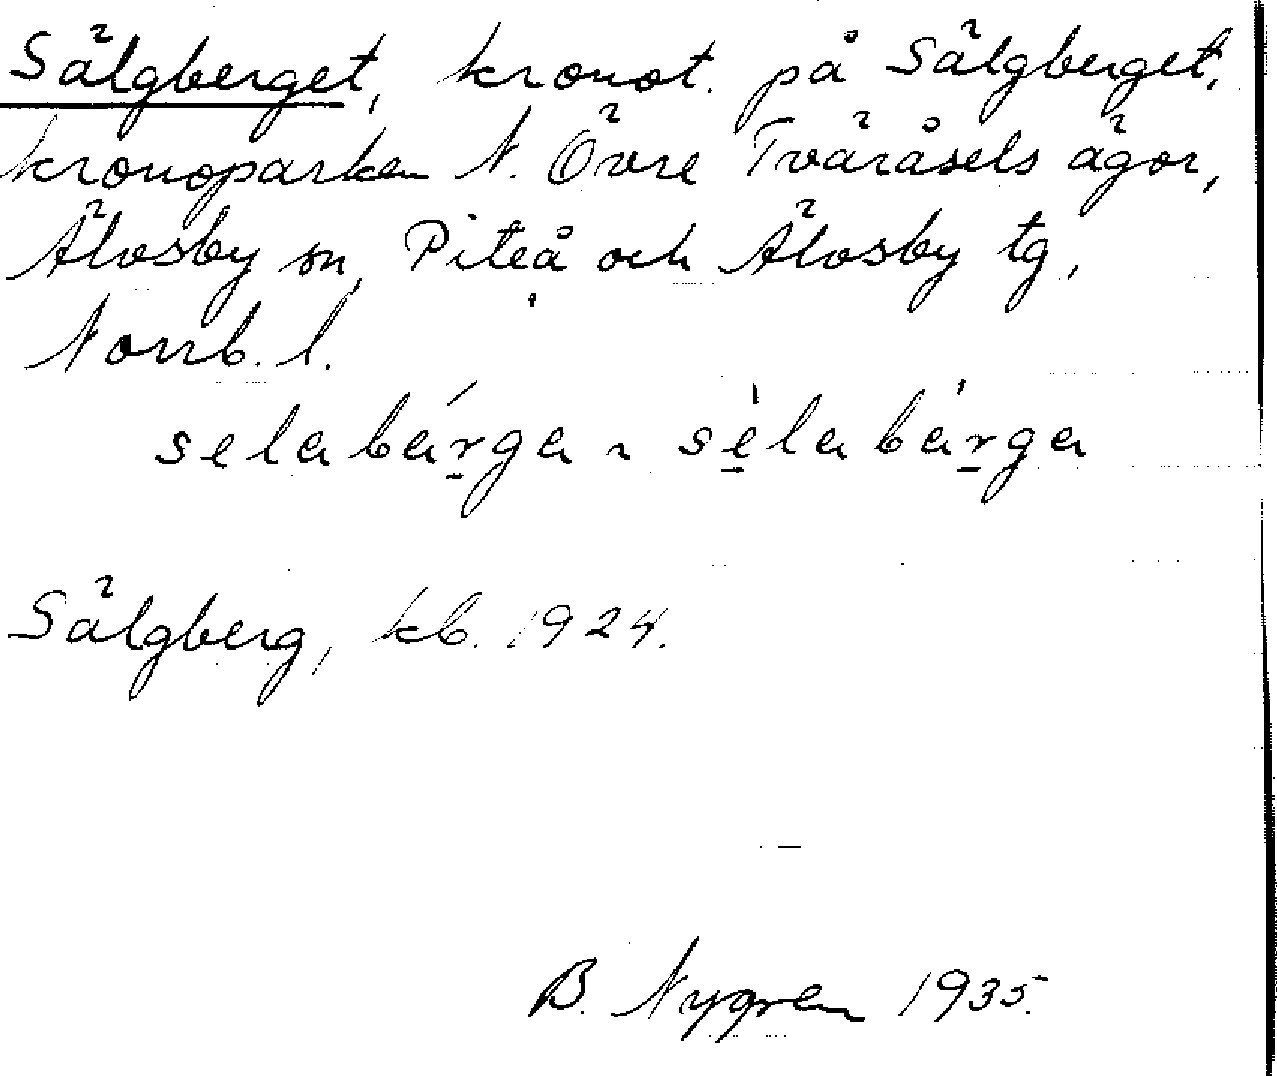 Sälgberget, kronot. på Sälgberget,
kronoparken N. Övre Tväråsels ägor,
Älvsby sn, Piteå och Älvsby tg,
Norrb. l.
selabárga ~ sèlabárga
Sälgberg, kb. 1924.
B. Nygren 1935.